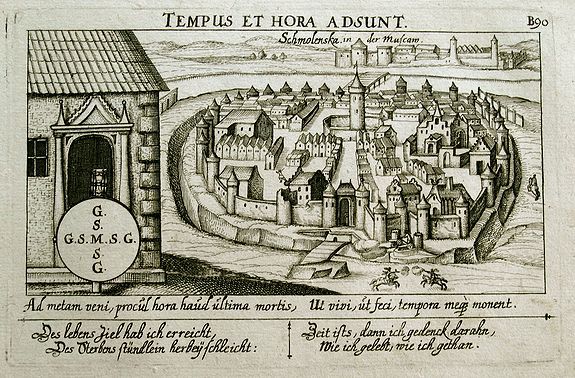 TEMPUS ET HORA ADSUNT.
B90
Schmolenska in der Muscam.
G.
S.
G.S.M.S.G.
S.
G.
Ad metam veni, procûl hora haûd ûltima mortis, Ut vivi, ût feci, tempora meq monent.
Des lebens Ziel hab ich erreicht,
Des Sterbens stündlein herbey schleicht:
Zeit ists, dann ich gedenck darahn,
Wie ich gelebt, wie ich gethan.